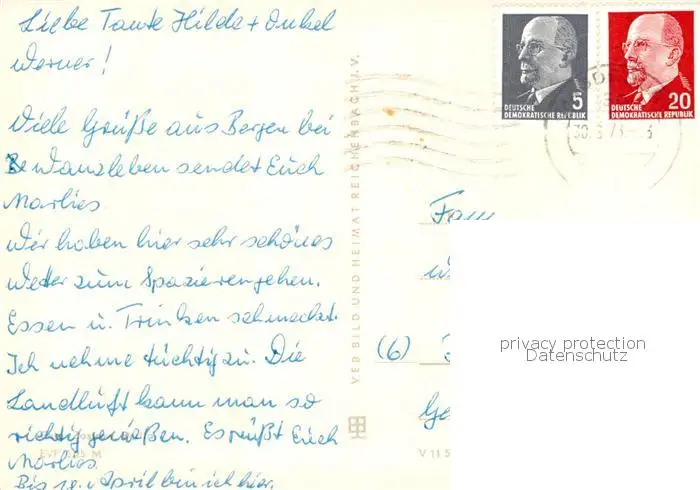 Liebe Tante Hilde + Onkel
Werner!
Viele Grüße aus Bergen bei
Wanzleben sendet Euch
Marlies
Wir haben hier sehr schönes
Wetter zum Spazierengehen.
Essen u. Trinken schmeckt.
Ich nehme tüchtig zu. Die
Landluft kann man so
richtig genießen. Es grüßt Euch
Marlies.
Bis 18. April bin ich hier.
EVP M
VEB BILD UND HEIMAT REICHENBACH I. V.
V 11 5
5
DEUTSCHE
DEMOKRATISCHE REPUBLIK
20
DEUTSCHE
DEMOKRATISCHE REPUBLIK
Fam
(6)
privacy protection
Datenschutz